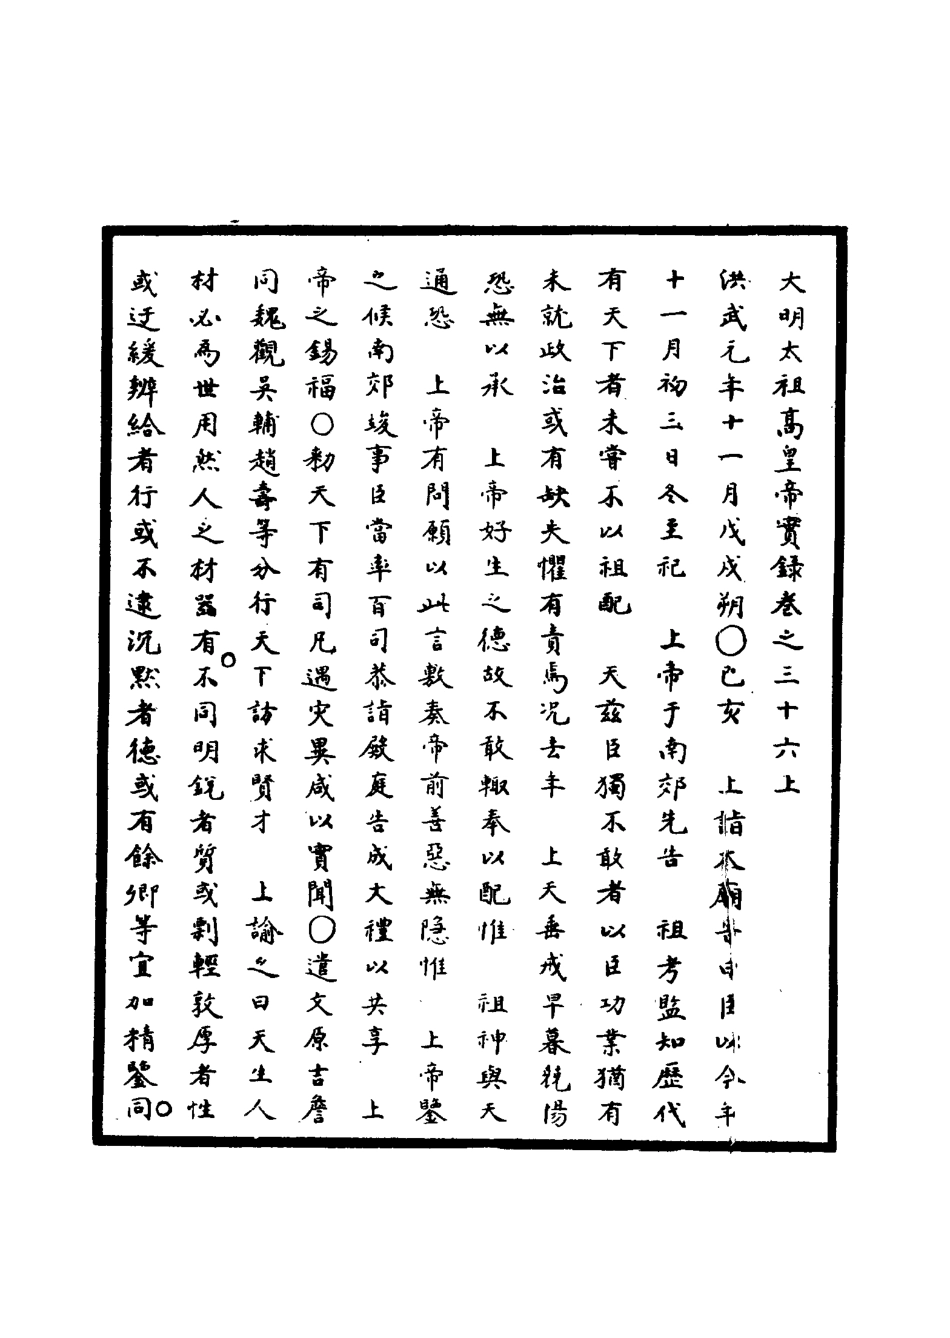 大明太祖高皇帝實錄卷之三十六上
洪武元年十一月戊戌朔○己亥　上詣太廟告曰臣以今年
十一月初三日冬至祀　上帝于南郊先告　祖考監知歷代
有天下者未嘗不以祖配　天茲臣獨不敢者以臣功業猶有
未就政治或有缺失懼有責焉况去年　上天垂戒早暮兢惕
恐無以承　上帝好生之德故不敢輒奉以配惟　祖神與天
通恐　上帝有問願以此言敷奏帝前善惡無隱惟　上帝鑒
之候南郊竣事臣當率百司恭詣殿庭告成大禮以共享　上
帝之錫福○勑天下有司凡遇灾異咸以實聞○遣文原吉詹
同魏觀吳輔趙壽等分行天下訪求賢才　上諭之曰天生人
材必為世用然人之材器有不同明銳者質或剽輕敦厚者性
或迂緩辨給者行或不逮沉默者德或有餘卿等宜加精鑒同